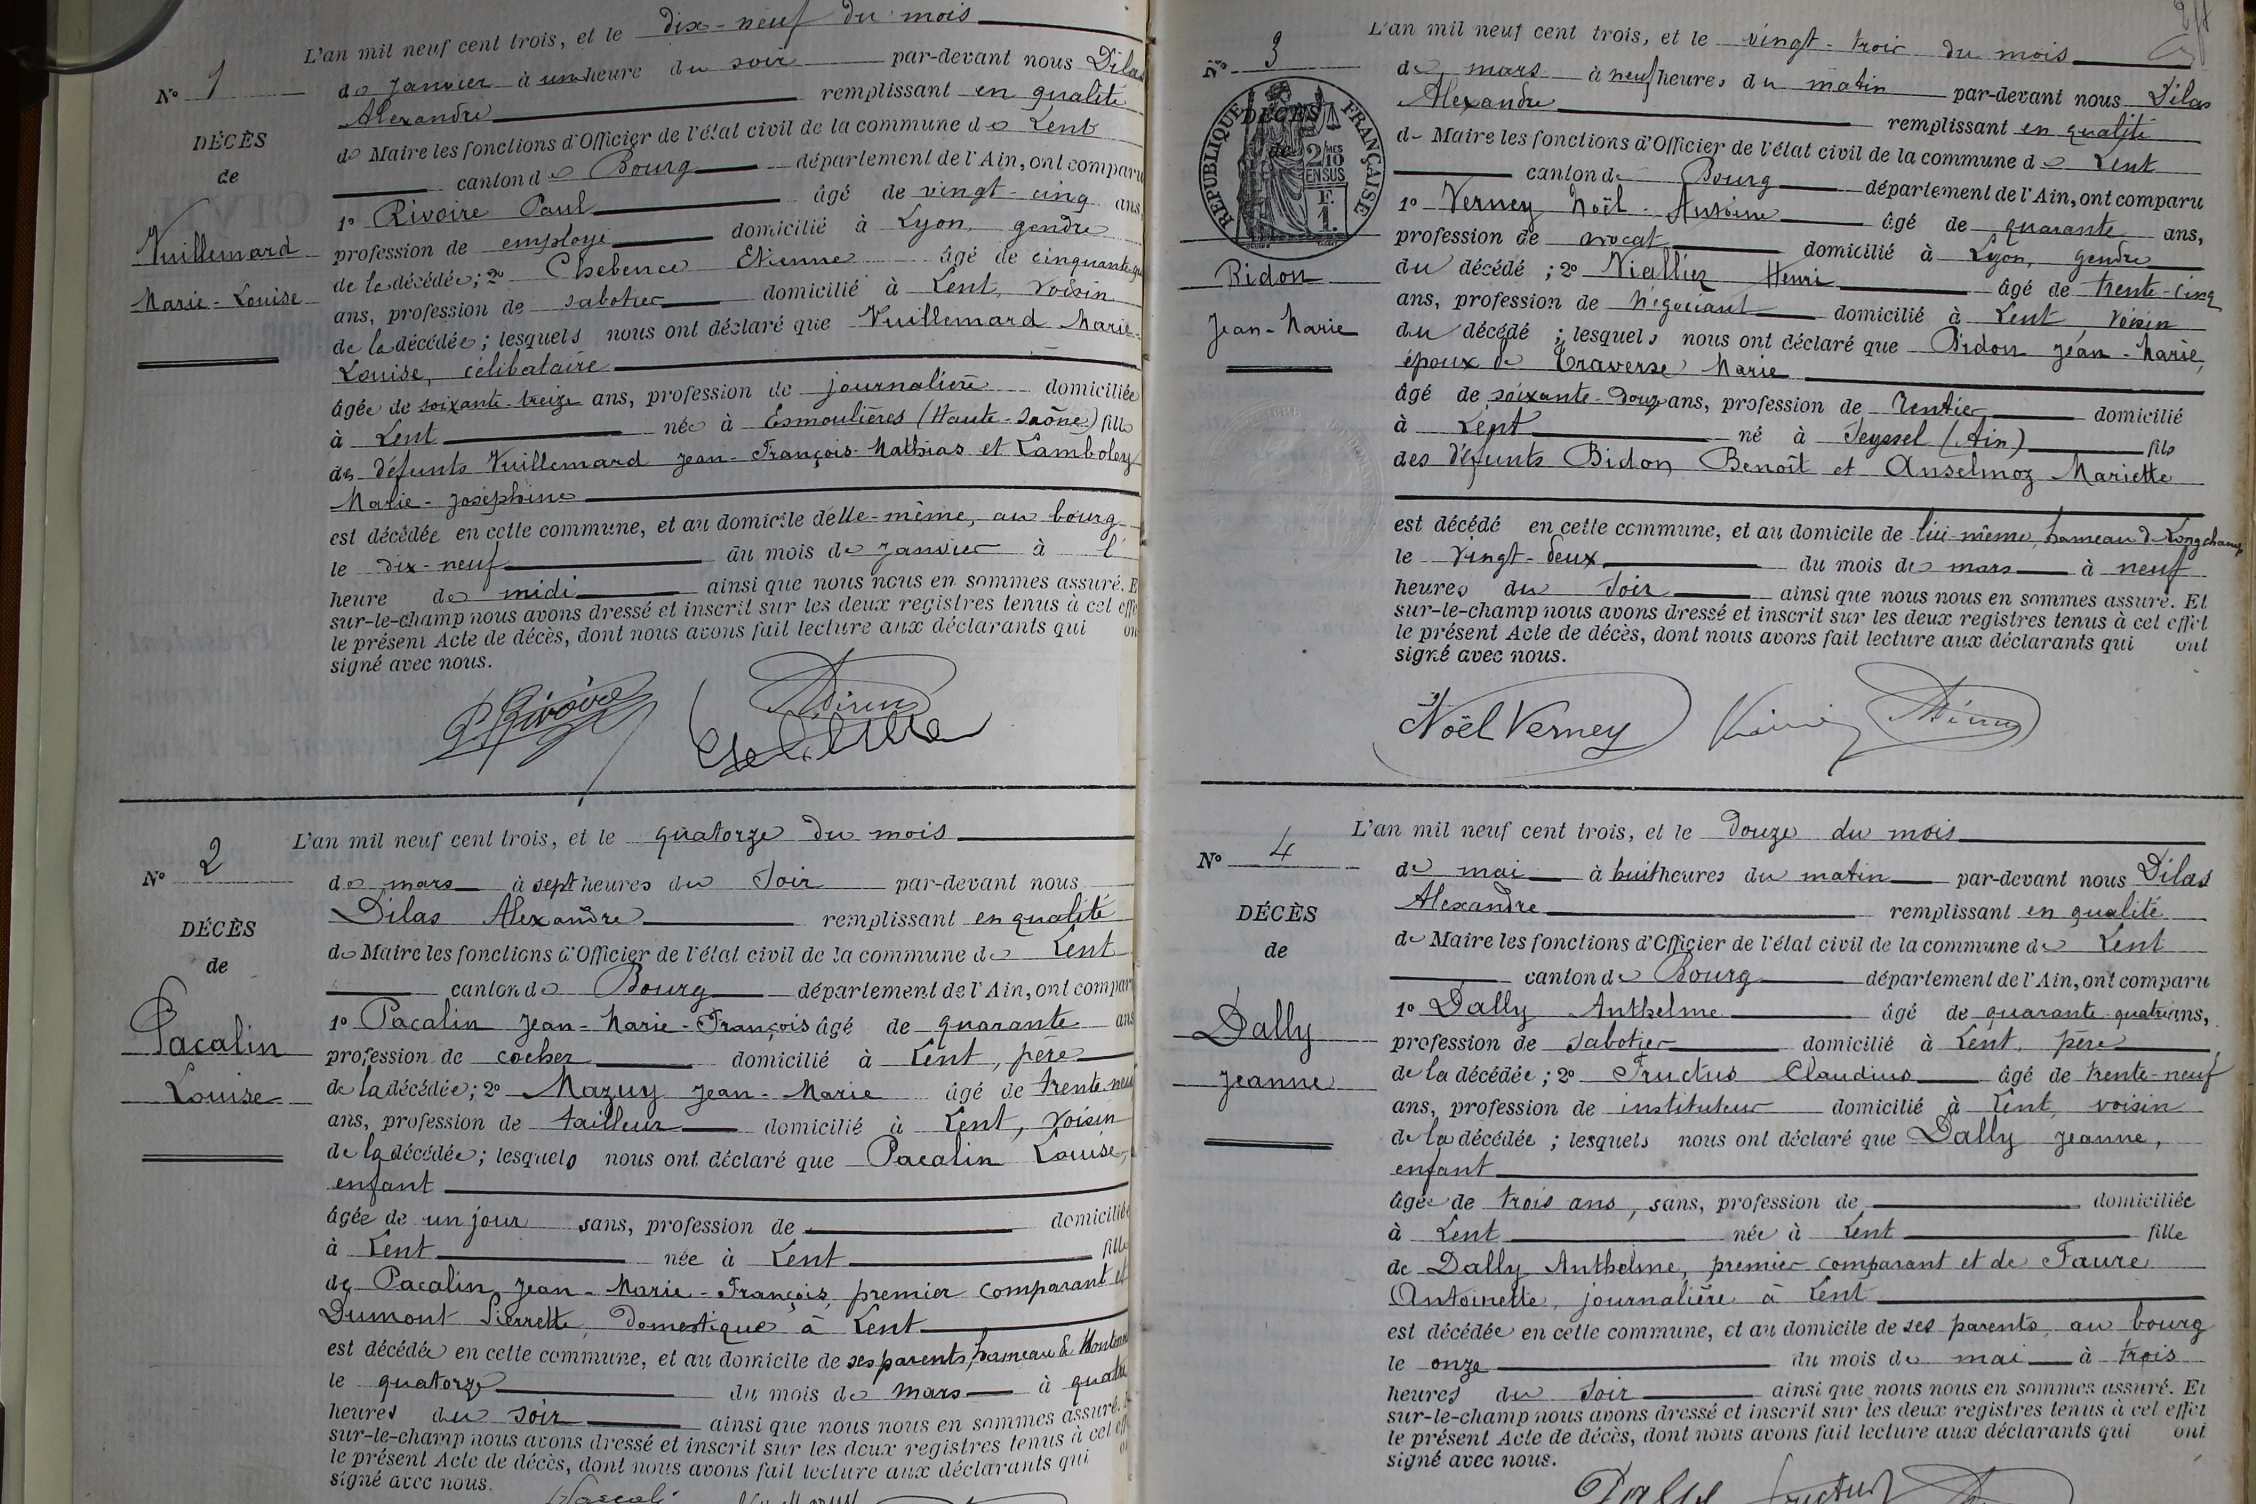 L'an mil neuf cent trois, et le dix-neuf du mois
N° 1
de Janvier à une heure du soir par-devant nous Dilas
Alexandre remplissant en qualité
DÉCÈS
de Maire les fonctions d'Officier de l'état civil de la commune de Lent
de
canton de Bourg département de l'Ain, ont comparu
1° Rivoire Paul âgé de vingt-cinq ans,
Vuillemard
profession de employé domicilié à Lyon, gendre
de la décédée; 2° Etienne âgé de
Marie-Louise
ans, profession de sabotier domicilié à Lent, voisin
de la décédée; lesquels nous ont déclaré que Vuillemard Marie-
Louise, célibataire
âgée de soixante-treize ans, profession de journalière domiciliée
à Lent née à Esmoulières (Haute-Saône) fille
des défunts Vuillemard Jean-François-Mathias et Lamboley
Marie-Joséphine
est décédée en cette commune, et au domicile d'elle-même, au bourg
le dix-neuf du mois de Janvier à l'
heure de midi ainsi que nous nous en sommes assuré. E
sur-le-champ nous avons dressé et inscrit sur les deux registres tenus à cet effe
le présent Acte de décès, dont nous avons fait lecture aux déclarants qui on
signé avec nous.
P Rivoire
L'an mil neuf cent trois, et le quatorze du mois
N° 2
de mars à sept heures du Soir par-devant nous
Dilas Alexandre remplissant en qualité
DÉCÈS
de Maire les fonctions d'Officier de l'état civil de la commune de Lent
de
canton de Bourg département de l'Ain, ont compar
1° Pacalin Jean-Marie-François âgé de quarante ans
Pacalin
profession de cocher domicilié à Lent, père
Louise
de la décédée; 2° Mazuy Jean-Marie âgé de trente-neuf
ans, profession de tailleur domicilié à Lent, voisin
de la décédée; lesquels nous ont déclaré que Pacalin Louise,
enfant
âgée de un jour sans, profession de domiciliée
à Lent née à Lent fille
de Pacalin Jean-Marie-François, premier comparant et
Dumont Pierrette, domestique à Lent
est décédée en cette commune, et au domicile de ses parents, hameau de
le quatorze du mois de mars à quatre
heures du soir ainsi que nous nous en sommes assuré.
sur-le-champ nous avons dressé et inscrit sur les deux registres tenus à cet eff
le présent Acte de décès, dont nous avons fait lecture aux déclarants qui
signé avec nous.
L'an mil neuf cent trois, et le vingt-trois du mois
N° 3
de mars à neuf heures du matin par-devant nous Dilas
Alexandre remplissant en qualité
DÉCÈS
de
RÉPUBLIQUE FRANÇAISE
2/10 MES
EN SUS
F.
1.
de Maire les fonctions d'Officier de l'état civil de la commune de Lent
canton de Bourg département de l'Ain, ont comparu
1° Verney Noël-Antoine âgé de quarante ans,
profession de avocat domicilié à Lyon, gendre
Bidon
du décédé; 2° Viallier Henri âgé de trente-cinq
Jean-Marie
ans, profession de négociant domicilié à Lent, voisin
du décédé; lesquels nous ont déclaré que Bidon Jean-Marie,
époux de Traverse Marie
âgé de soixante-douze ans, profession de rentier domicilié
à Lent né à Seyssel (Ain) fils
des défunts Bidon Benoît et Anselmoz Mariette
est décédé en cette commune, et au domicile de lui-même, hameau de Longchamp
le vingt-deux du mois de mars à neuf
heures du Soir ainsi que nous nous en sommes assuré. Et
sur-le-champ nous avons dressé et inscrit sur les deux registres tenus à cet effet
le présent Acte de décès, dont nous avons fait lecture aux déclarants qui ont
signé avec nous.
Noël Verney
L'an mil neuf cent trois, et le douze du mois
N° 4
de mai à huit heures du matin par-devant nous Dilas
Alexandre remplissant en qualité
DÉCÈS
de Maire les fonctions d'Officier de l'état civil de la commune de Lent
de
canton de Bourg département de l'Ain, ont comparu
1° Dally Anthelme âgé de quarante-quatre ans,
Dally
profession de sabotier domicilié à Lent, père
Jeanne
de la décédée; 2° Fructus Claudius âgé de trente-neuf
ans, profession de instituteur domicilié à Lent, voisin
de la décédée; lesquels nous ont déclaré que Dally Jeanne,
enfant
âgée de trois ans, sans, profession de domiciliée
à Lent née à Lent fille
de Dally Anthelme, premier comparant et de Faure
Antoinette, journalière à Lent
est décédée en cette commune, et au domicile de ses parents, au bourg
le onze du mois de mai à trois
heures du Soir ainsi que nous nous en sommes assuré. Et
sur-le-champ nous avons dressé et inscrit sur les deux registres tenus à cet effet
le présent Acte de décès, dont nous avons fait lecture aux déclarants qui ont
signé avec nous.